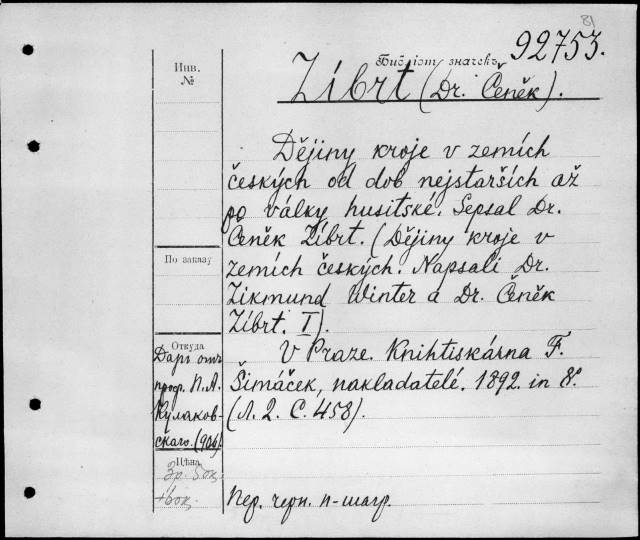 81
92753.
Инв.
№
Zíbrt (Dr. Čeněk).
Dějiny kroje v zemích
českých od dob nejstarších až
po války husitské. Sepsal Dr.
Čeněk Zíbrt. (Dějiny kroje v
По заказу
zemích českých. Napsali Dr.
Zikmund Winter a Dr. Čeněk
Zíbrt. I).
Откуда
V Praze. Knihtiskárna F.
Даръ отъ
проф. П. А.
Šimáček, nakladatelé. 1892. in 8º.
Кулаков-
(Л. 2. С. 458).
скаго. (906).
Цѣна
3р. 50к.
+60к.
Пер. черн. п-шагр.